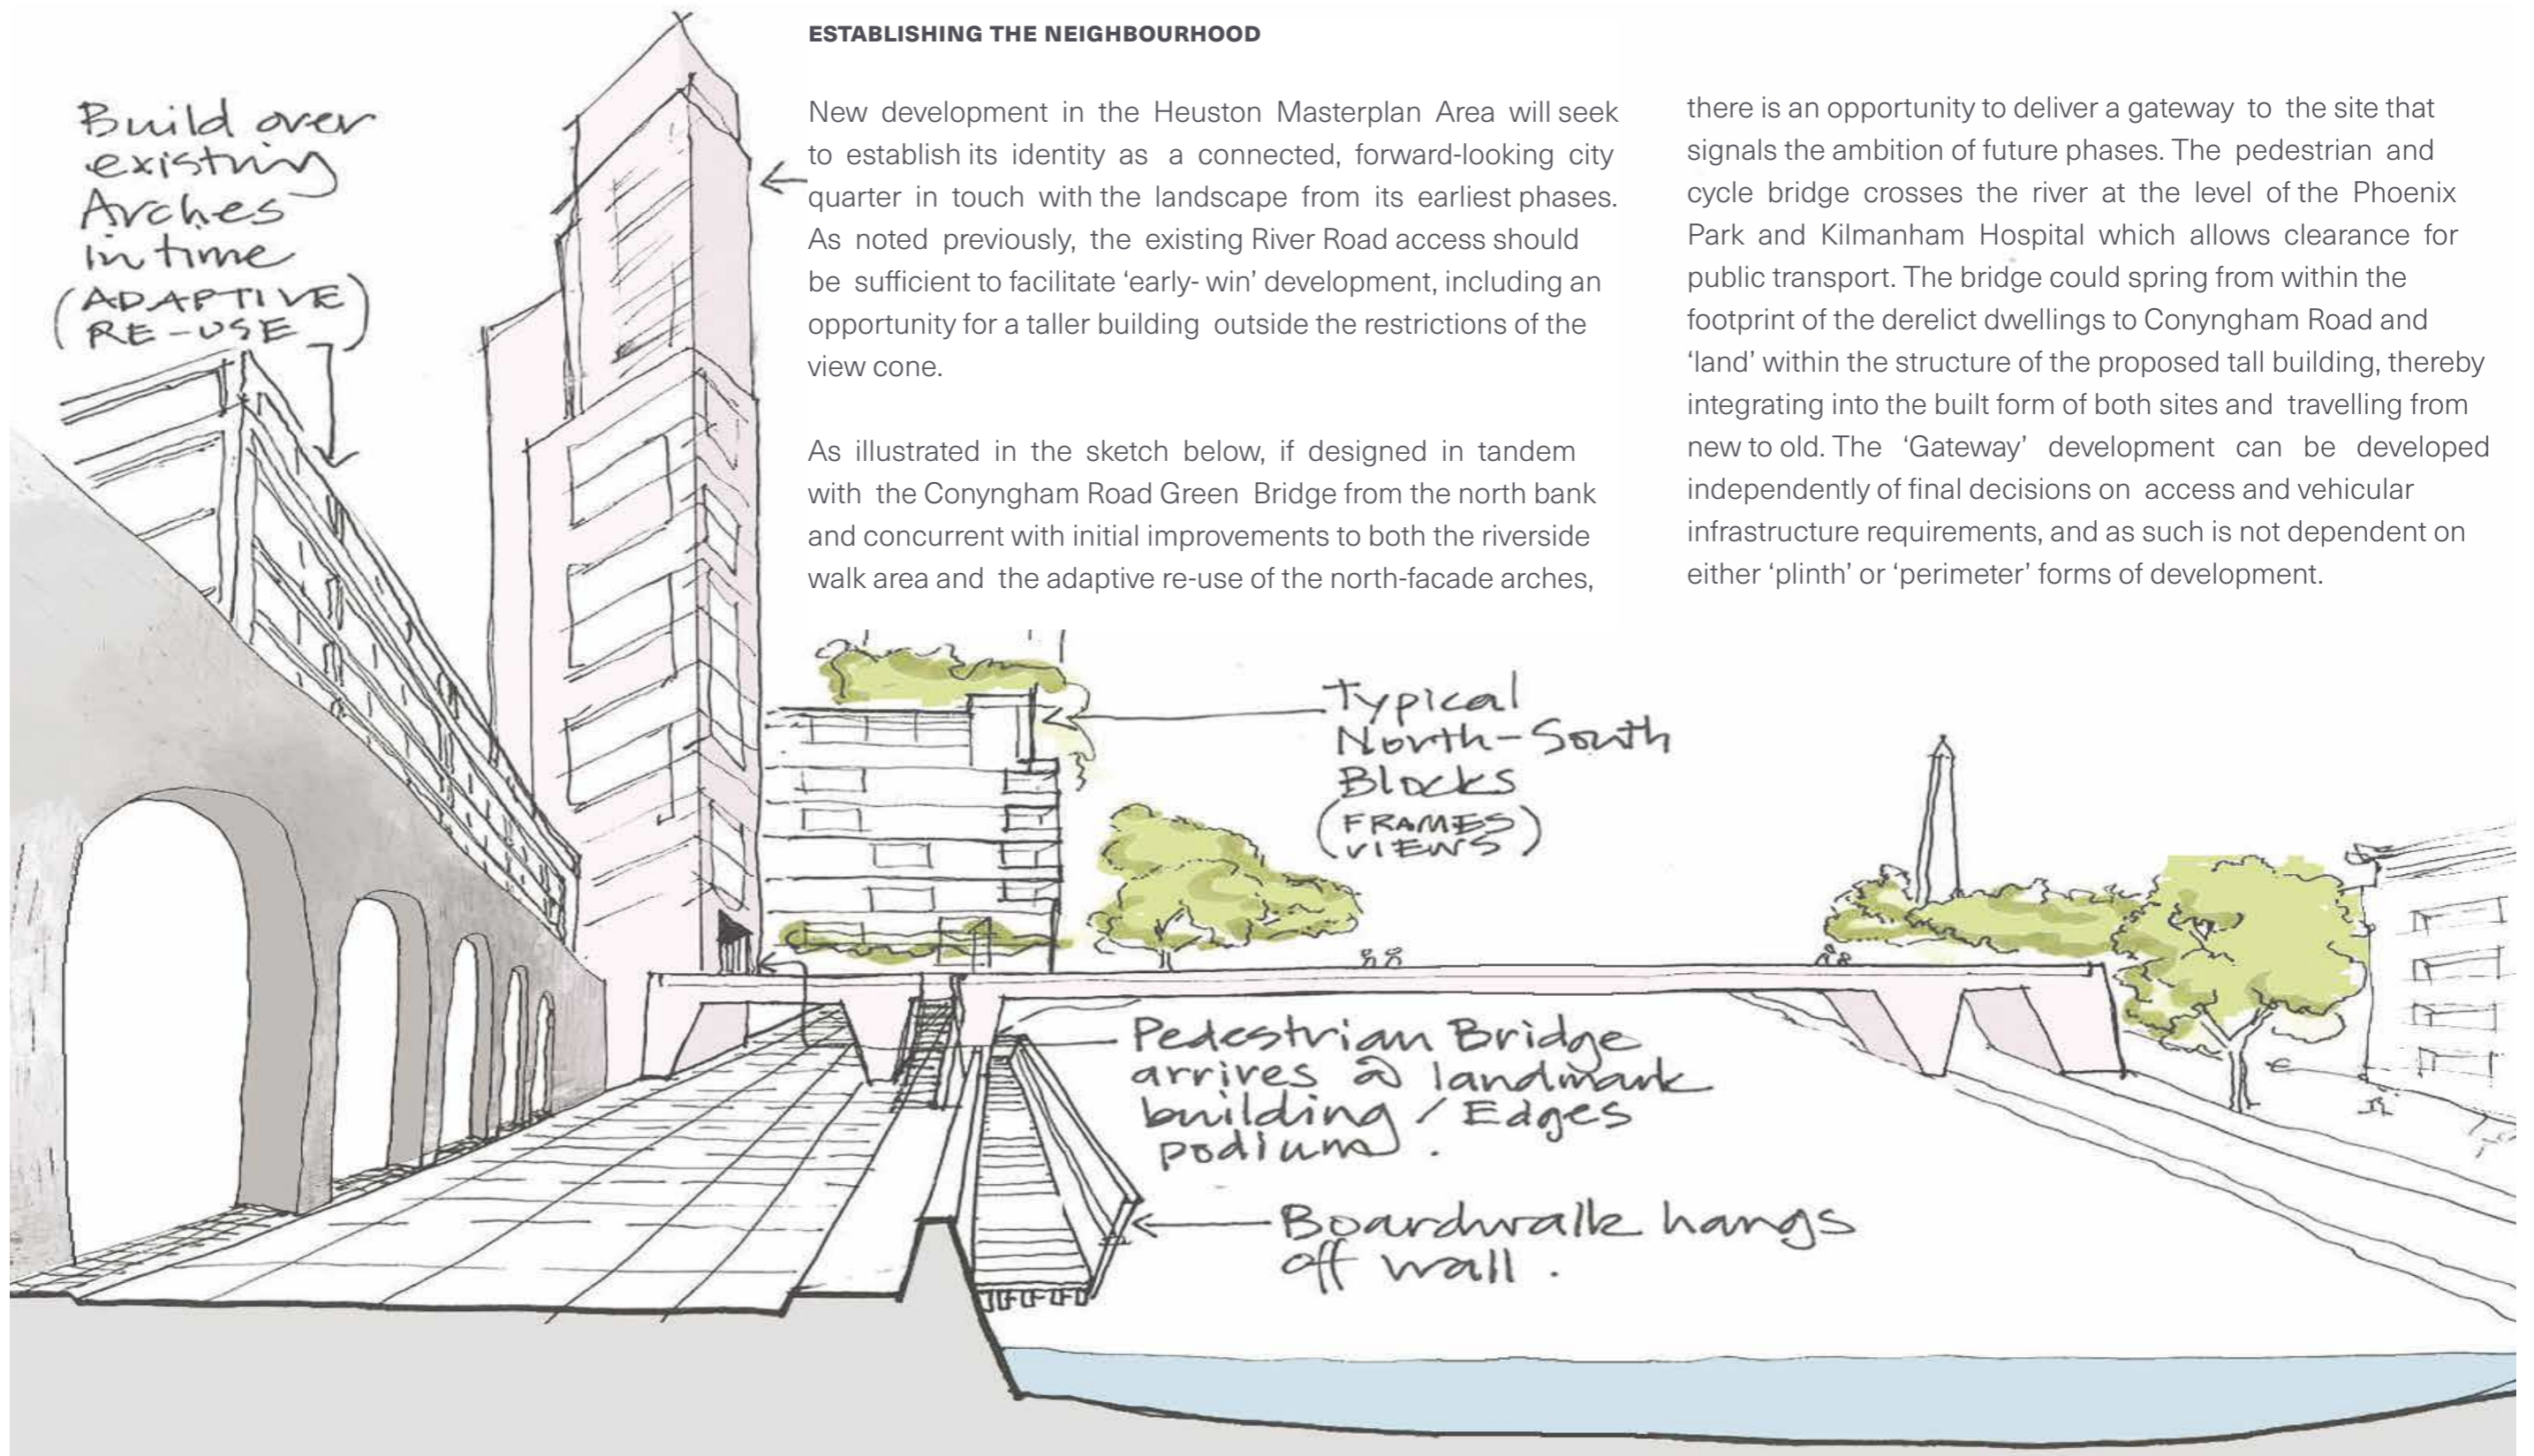 ESTABLISHING THE NEIGHBOURHOOD
New development in the Heuston Masterplan Area will seek
to establish its identity as a connected, forward-looking city
quarter in touch with the landscape from its earliest phases.
As noted previously, the existing River Road access should
be sufficient to facilitate ‘early- win’ development, including an
opportunity for a taller building outside the restrictions of the
view cone.
As illustrated in the sketch below, if designed in tandem
with the Conyngham Road Green Bridge from the north bank
and concurrent with initial improvements to both the riverside
walk area and the adaptive re-use of the north-facade arches,
there is an opportunity to deliver a gateway to the site that
signals the ambition of future phases. The pedestrian and
cycle bridge crosses the river at the level of the Phoenix
Park and Kilmanham Hospital which allows clearance for
public transport. The bridge could spring from within the
footprint of the derelict dwellings to Conyngham Road and
‘land’ within the structure of the proposed tall building, thereby
integrating into the built form of both sites and travelling from
new to old. The ‘Gateway’ development can be developed
independently of final decisions on access and vehicular
infrastructure requirements, and as such is not dependent on
either ‘plinth’ or ‘perimeter’ forms of development.
Build over
existing
Arches
in time
(ADAPTIVE
RE-USE)
Typical
North-South
Blocks
(FRAMES
VIEWS)
Pedestrian Bridge
arrives @ landmark
building / Edges
podium.
Boardwalk hangs
off wall.